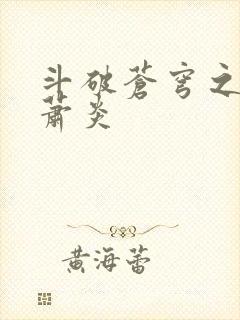 斗破苍穹之
萧炎
黄海蕾